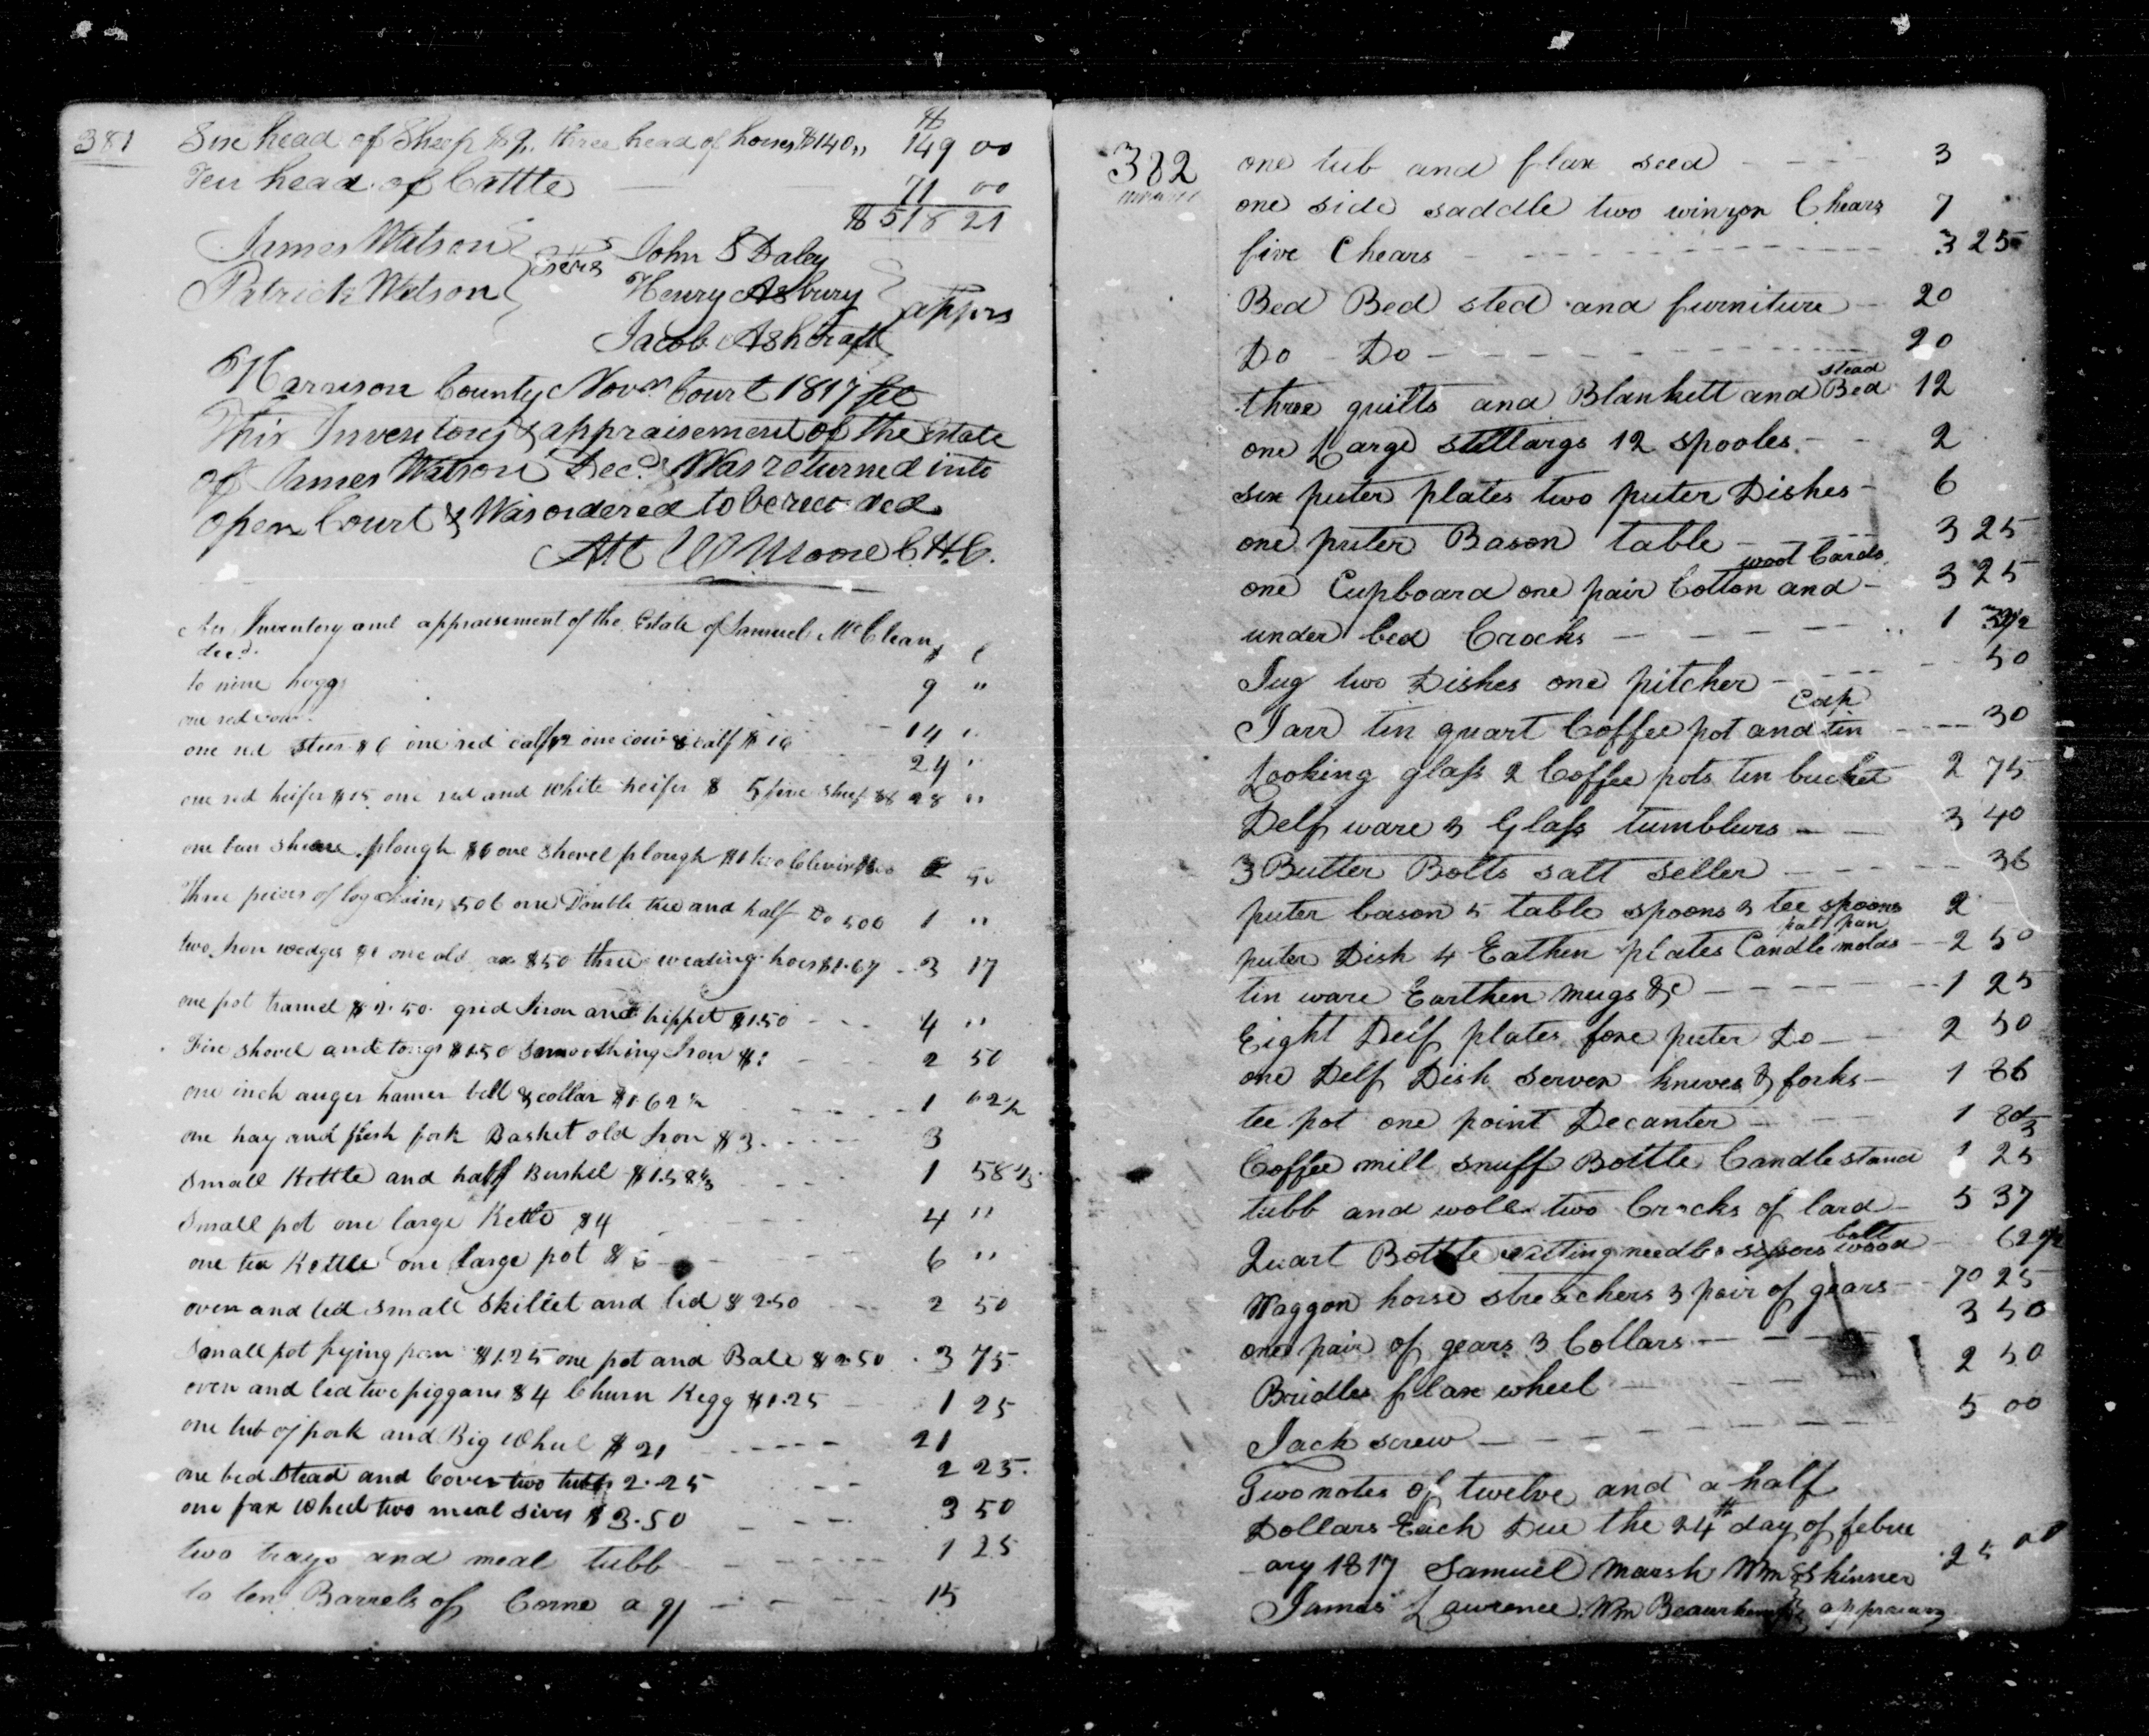 381
Six head of Sheep $9. three head of horses $140,, 149 00
Ten head of Cattle 71 00
$ 518 21
James Watson
Patrick Watson
Exers
John S Daley
Henry Asbury
Jacob Ashcraft
apprs
Harrison County Novr. Court 1817 Sct
This Inventory & appraisement of the Estate
of James Watson Decd. Was returned into
open Court & Was ordered to be recorded
Att W Moore C.H.C.
An Inventory and appraisement of the Estate of Samuel McClean
decd. $ c
to nine hoggs 9 "
one red cow 14 "
one red steer $6 one red calf $2 one cow & calf $16 24 "
one red heifer $15 one red and white heifer $ 5 five sheep $8 28 "
one bar sheare plough $6 one shovel plough $1 two Clevises 50
Three peices of log chains 50c one Double tree and half Do 50c 1 "
two Iron wedges $1 one old ax $50 three weading hoes $1.67 3 17
one pot tramel $2.50 grid Iron and hippet $1.50 4 "
Fire shovel and tongs $1.50 Smoothing Iron $1 2 50
one inch auger hamer bell & collar $1.62 1/2 1 62 1/2
one hay and flesh fork Basket old Iron $3. 3
Small Kettle and half Bushel $1.58 1/3 1 58 1/3
Small pot one large Kettle $4 4 "
one tea Kettle one large pot $6 6 "
oven and led small skillet and lid $2.50 2 50
Small pot frying pan $1.25 one pot and Bale $2.50 3 75
oven and led two piggans $4 Churn Kegg $1.25 1 25
one tub of pork and Big Wheel $21 21
one bed stead and Cover two tubbs 2.25 2 25.
one fax Wheel two meal sives $3.50 3 50
two trays and meal tubb 1 25
to ten Barrels of Corne a 9/ 15
382
one tub and flax seed 3
one side saddle two winzon Chears 7
five Chears 3 25
Bed Bed sted and furniture 20
Do Do 20
stead
three quilts and Blankett and Bed 12
one Large stillargs 12 spooles 2
six puter plates two puter Dishes 6
one puter Bason table 3 25
wool Cards
one Cupboard one pair Cotton and 3 25
under bed Crocks 1 37 1/2
Jug two Dishes one pitcher 50
Cup
Jarr tin quart Coffee pot and tin 30
Looking glass 2 Coffee pots tin bucket 2 75
Delf ware 3 Glass tumblers 3 40
3 Butter Bolts salt seller 36
puter bason 5 table spoons 3 tee spoons 2
patt pan
puter Dish 4 Eathen plates Candle molds 2 50
tin ware Earthen mugs &c 1 25
Eight Delf plates fore puter Do 2 50
one Delf Dish Serven knives & forks 1 86
tee pot one point Decanter 1 80
Coffee mill snuff Bottle Candle stand 1 25
tubb and woll two Crocks of lard 5 37
bolt
Quart Bottle nitting needles sissors wood 62 1/2
Waggon horse streachers 3 pair of gears 70 25
one pair of gears 3 Collars 3 50
Bridles flax wheel 2 50
Jack screw 5 00
Two notes of twelve and a half
Dollars Each Due the 24th day of febru
ary 1817 Samuel Marsh Wm Skinner 25 00
James Lawrence Wm appraiers